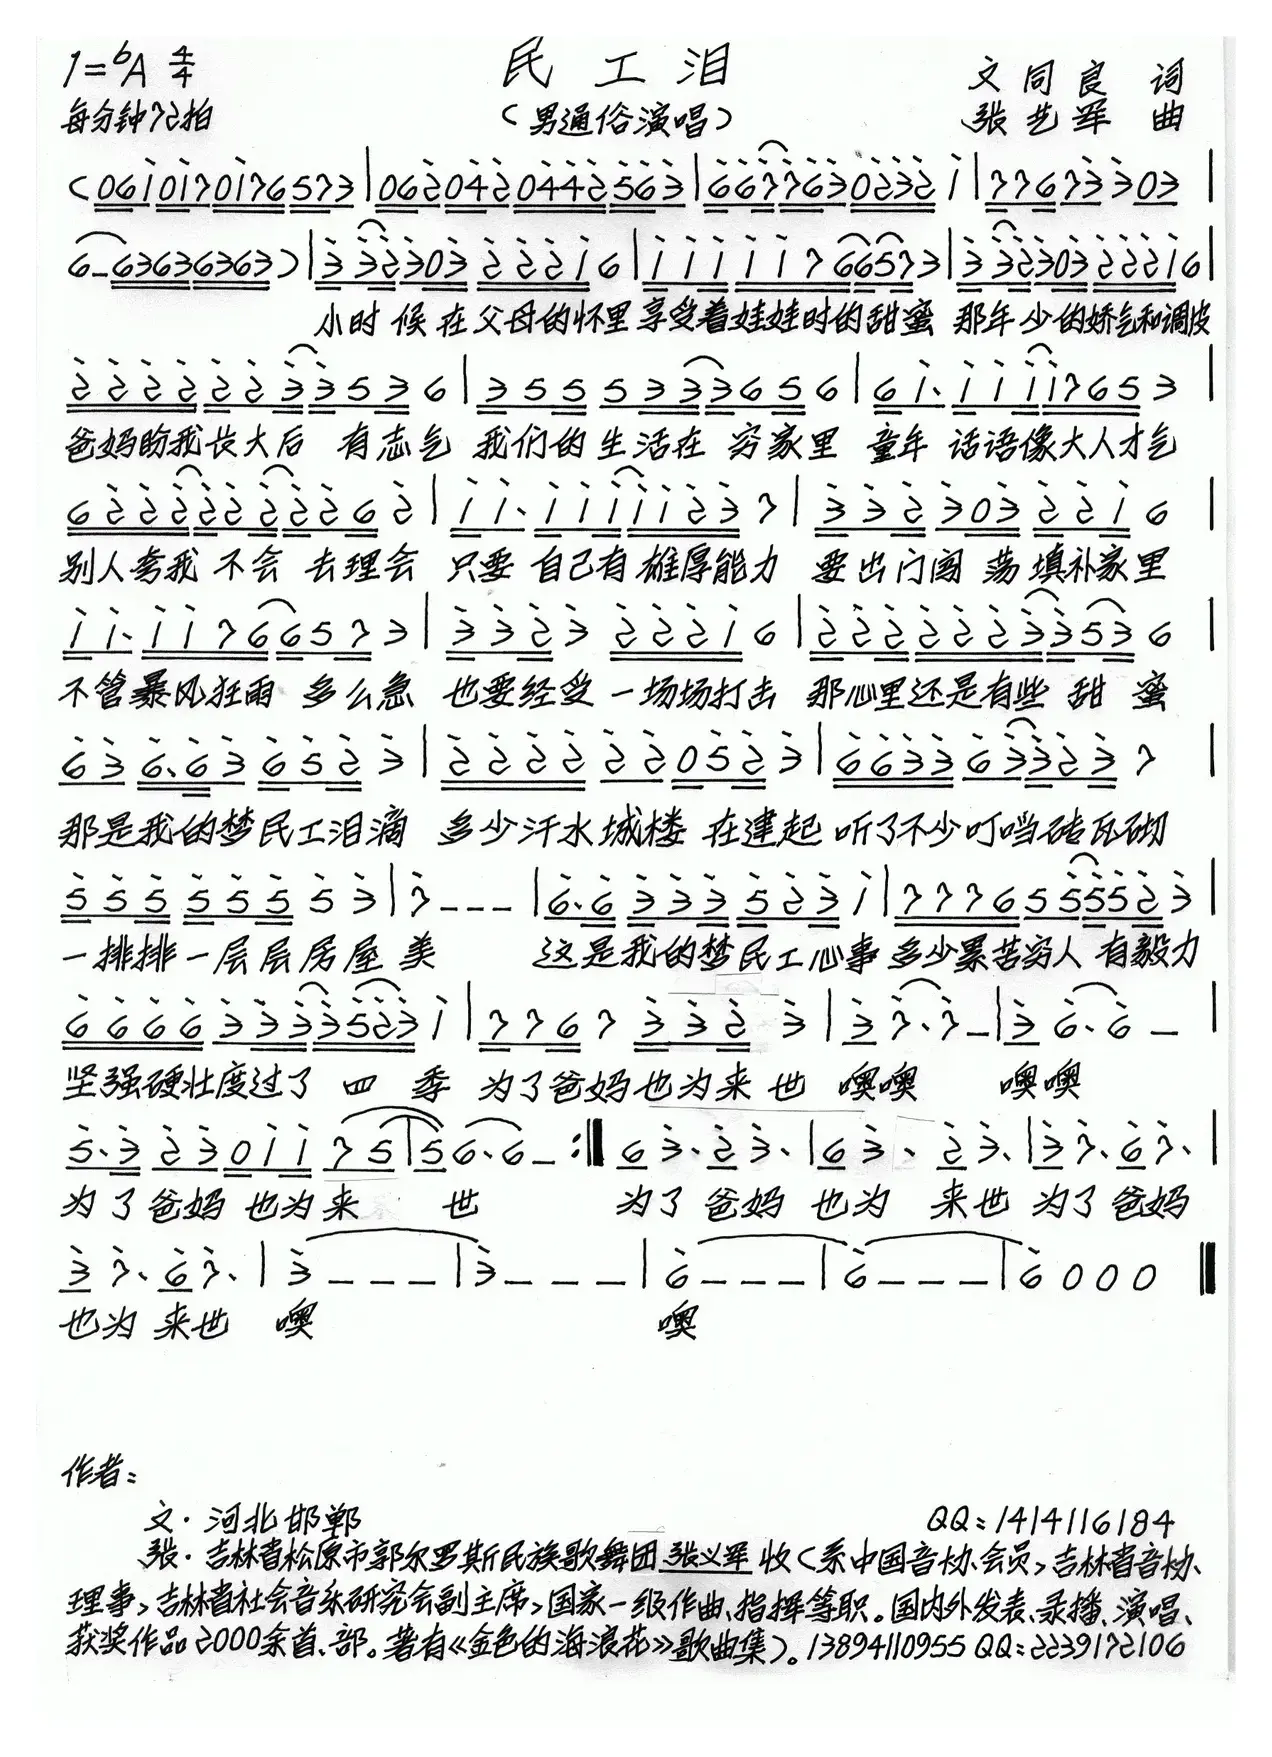 1=ᵇA 4/4
民工泪
文同良 词
每分钟72拍
（男通俗演唱）
张艺军 曲
(06i0i70i76573|0620420442563|6677630232i|77673303|
6-63636363)|332303222i6|iiiii766573|332303222i6|
小时候在父母的怀里享受着娃娃时的甜蜜 那年少的娇气和调皮
22222233536|3555333656|6i·iiii7653|
爸妈盼我长大后 有志气 我们的生活在 穷家里 童年 话语像大人才气
62222222262|ii·iiiii237|33230322i6|
别人夸我 不会 去理会 只要 自己有雄厚能力 要出门闯 荡填补家里
ii·ii766573|3323222i6|22222233536|
不管暴风狂雨 多么急 也要经受 一场场打击 那心里还是有些 甜 蜜
636·636523|2222220523|6633633237|
那是我的梦民工泪滴 多少汗水城楼 在建起 听了不少叮当砖瓦砌
55555553|7---|6·6333523i|77765555523|
一排排一层层房屋 美 这是我的梦民工心事 多少累苦穷人 有毅力
66663333523i|77673323|37·7-|36·6-|
坚强硬壮度过了 四 季 为了爸妈也为来世 噢噢 噢噢
5·3230ii75|56·6-:‖63·23·|63·23·|37·67·|
为了爸妈 也为来 世 为了爸妈 也为 来世 为了爸妈
37·67·|3---|3---|6---|6---|6000‖
也为 来世 噢 噢
作者：
文·河北邯郸
QQ：1414116184
张·吉林省松原市郭尔罗斯民族歌舞团张义军收（系中国音协会员，吉林省音协、
理事，吉林省社会音乐研究会副主席，国家一级作曲、指挥等职。国内外发表、录播、演唱、
获奖作品2000余首、部。著有《金色的海浪花》歌曲集）。13894110955 QQ：2239172106